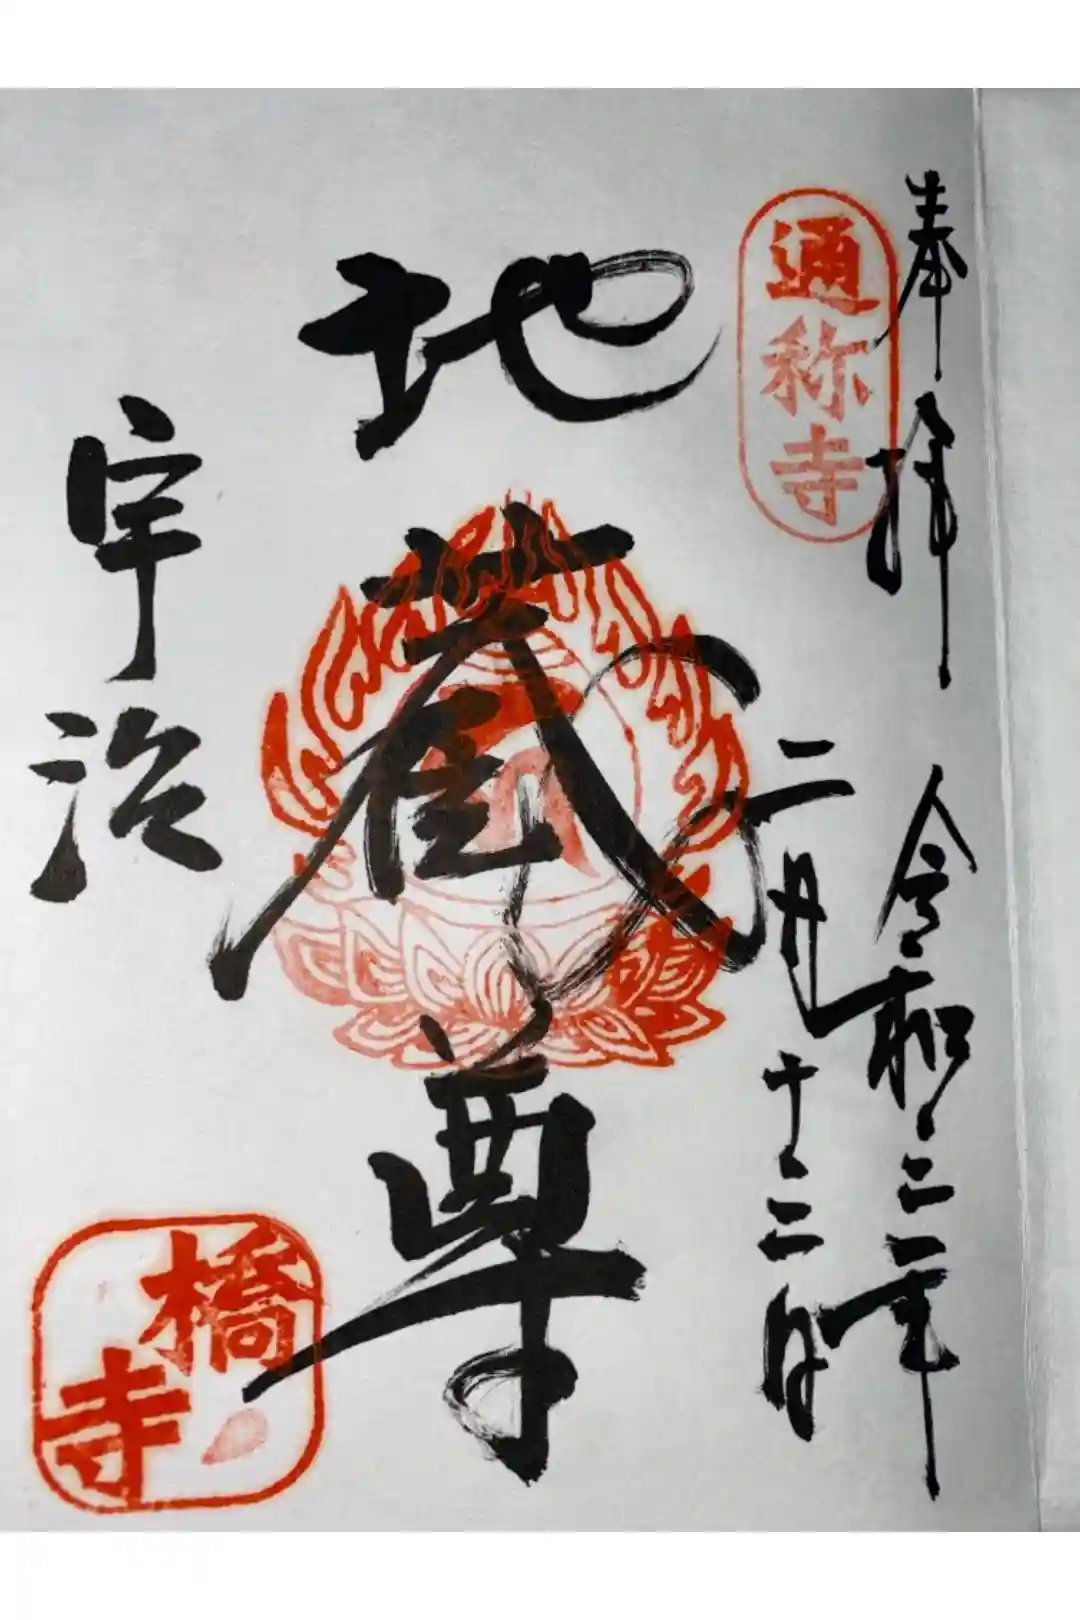 奉拝
令和二年
二月十二日
通称寺
地蔵尊
宇治
橋寺